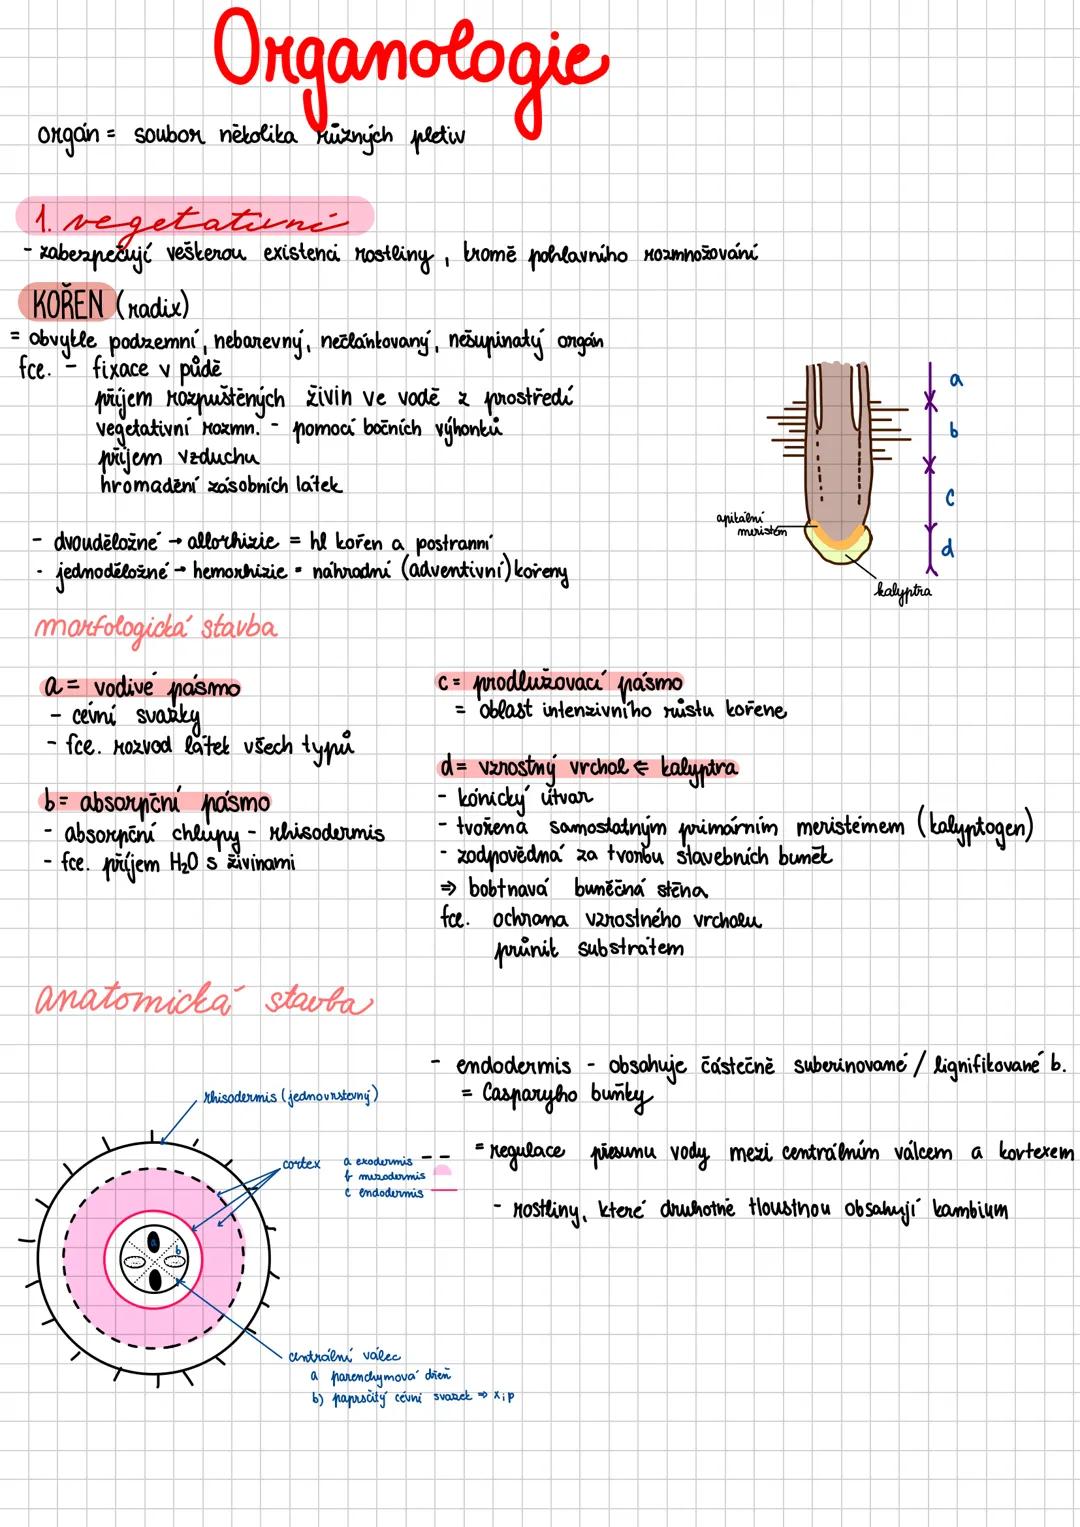 Organologie
orgán = soubor několika různých pletiv
1. vegetativní
- zabezpečují veškerou existenci rostliny, kromě pohlavního rozmnožování
KOŘEN (radix)
= obvykle podzemní, nebarevný, nečlánkovaný, nešupinatý orgán
fce. - fixace v půdě
příjem rozpuštěných živin ve vodě z prostředí
vegetativní rozmn. - pomocí bočních výhonků
příjem vzduchu
hromadění zásobních látek
a
b
c
d
apikální
meristém
kalyptra
- dvouděložné → allorhizie = hl kořen a postranní
- jednoděložné → hemorhizie = náhradní (adventivní) kořeny
morfologická stavba
a = vodivé pásmo
- cévní svazky
- fce. rozvod látek všech typů
b = absorpční pásmo
- absorpční chlupy - rhisodermis
- fce. příjem H₂O s živinami
c = prodlužovací pásmo
= oblast intenzivního růstu kořene
d = vzrostný vrchol ⇐ kalyptra
- kónický útvar
- tvořena samostatným primárním meristémem (kalyptogen)
- zodpovědná za tvorbu stavebních buněk
⇒ bobtnavá buněčná stěna
fce. ochrana vzrostného vrcholu
průnik substrátem
anatomická stavba
- endodermis - obsahuje částečně suberinované / lignifikované b.
= Casparyho buňky
= regulace přesunu vody mezi centrálním válcem a kortexem
- rostliny, které druhotně tloustnou obsahují kambium
rhisodermis (jednovrstevný)
cortex
a exodermis
b mezodermis
c endodermis
a
b
centrální válec
a parenchymová dřeň
b) paprsčitý cévní svazek ⇒ x i p